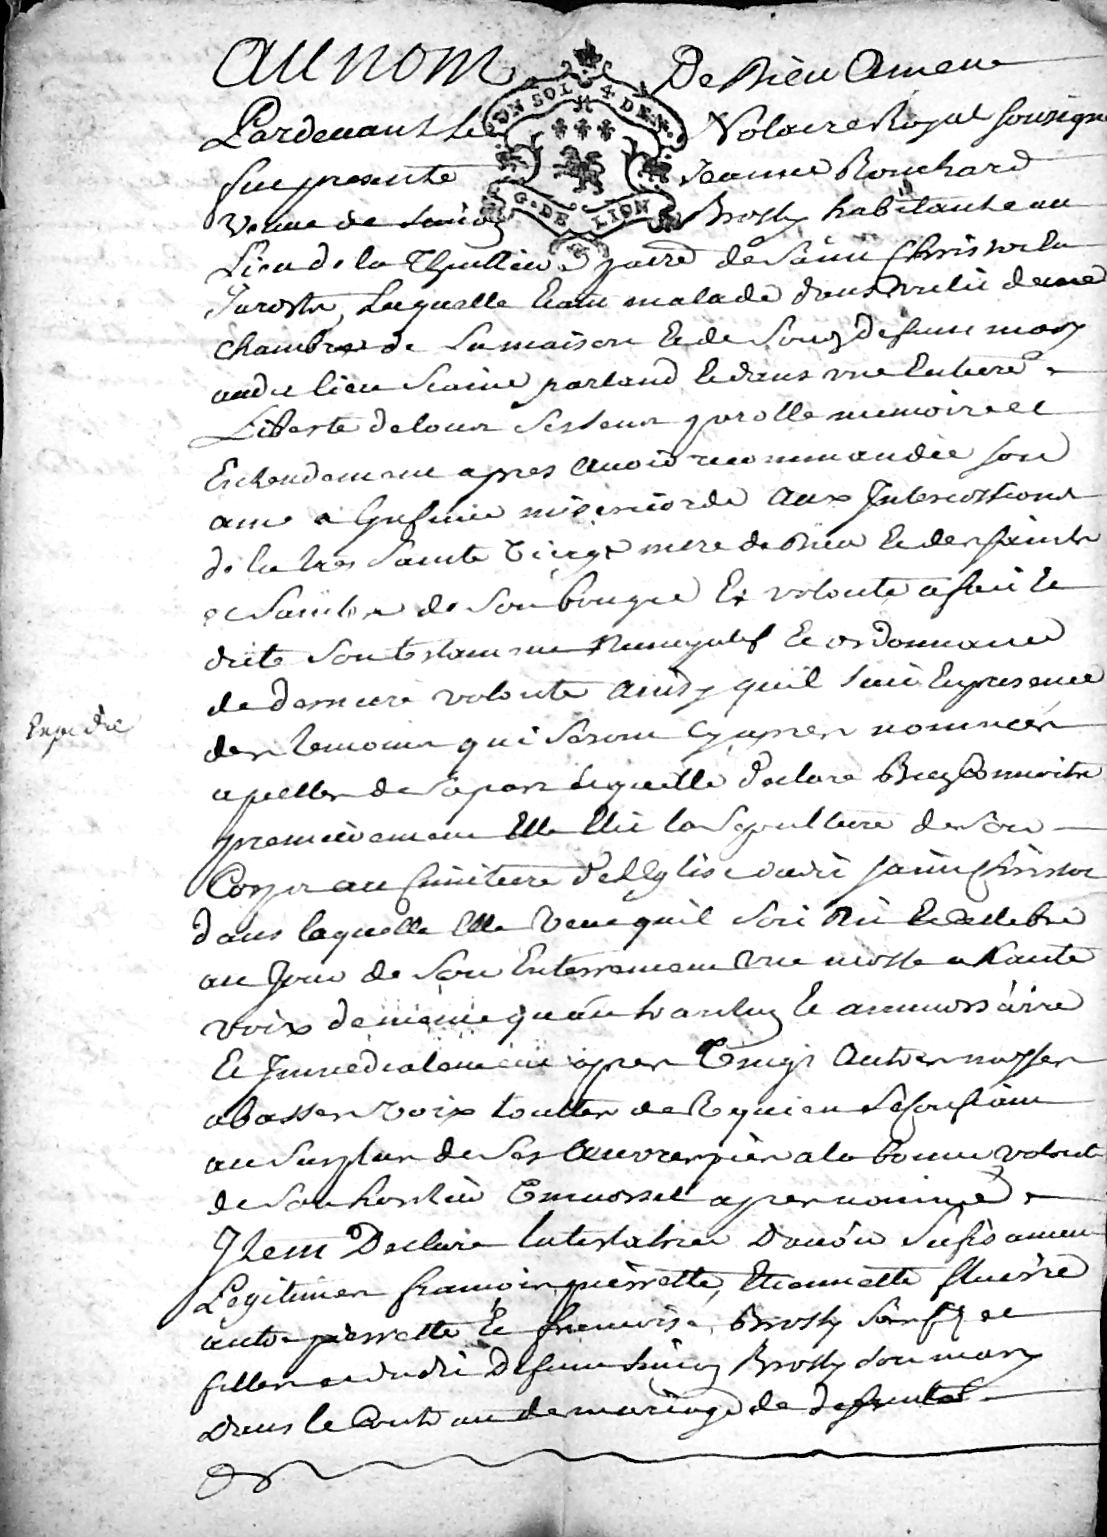 au nom De Dieu Amen
UN SOL 4 DEN.
G. DE LION
Pardevant le Notaire Royal soussigné
fut presente Jeanne Bouchard
veuve de Brossy habitante au
Lieu de la paroisse de Saint Christo en
Jarostz, laquelle etant malade dans une
chambre de sa maison et de son defunt mary
audit lieu saine parlant et dans une entiere
Liberte de tous ses sens parolle memoire et
Entendement apres avoir recommandée son
ame a misericorde aux Intercessions
de la tres Sainte Vierge mere de Dieu et des saints
et saintes de son bon gre et volonté a fait et
dicté son testament nuncupatif et ordonnance
de derniere volonté ainsy quil suit En presence
des temoins qui seront cy apres nommés
apellés de sa part laquelle declare
premierement Elle Elit la sepulture de son
Corps au Cimitiere de lEglise dudit saint Christo
dans laquelle Elle veut quil soit dit et celebré
au Jour de son Enterrement une messe a haute
voix de meme quau et anniversaire
Et Immediatement apres vingt autres messes
a basses voix touttes de Requiem se confiant
au surplus de ses œuvres pies a la bonne volonté
de son heritier universel apres nommé
Item Declare la testatrice davoir
Legitimes francois pierrette, Etiennette
pierrette et francoise Brossy ses fils et
filles dudit Defunt Brossy son mary
Dans le Contrat de mariage de
Expedié